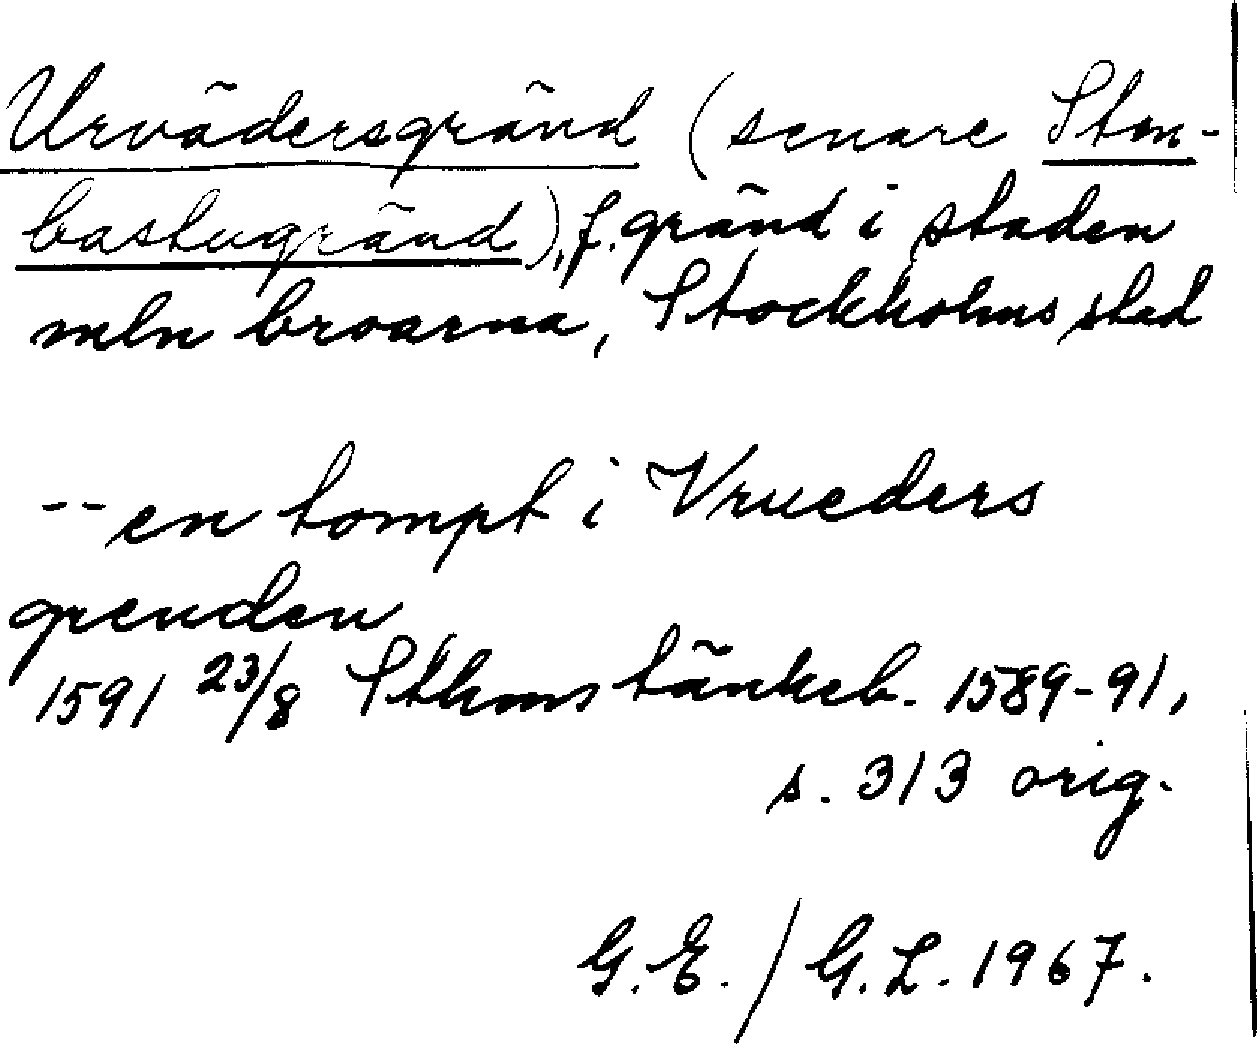 Urvädersgränd (senare Sten-
bastugränd), f. gränd i staden
mln broarna, Stockholms stad
-- en tompt i Vrueders
grenden
1591 23/8 Sthms tänkeb. 1589-91,
s. 313 orig.
G.E. / G.L. 1967.